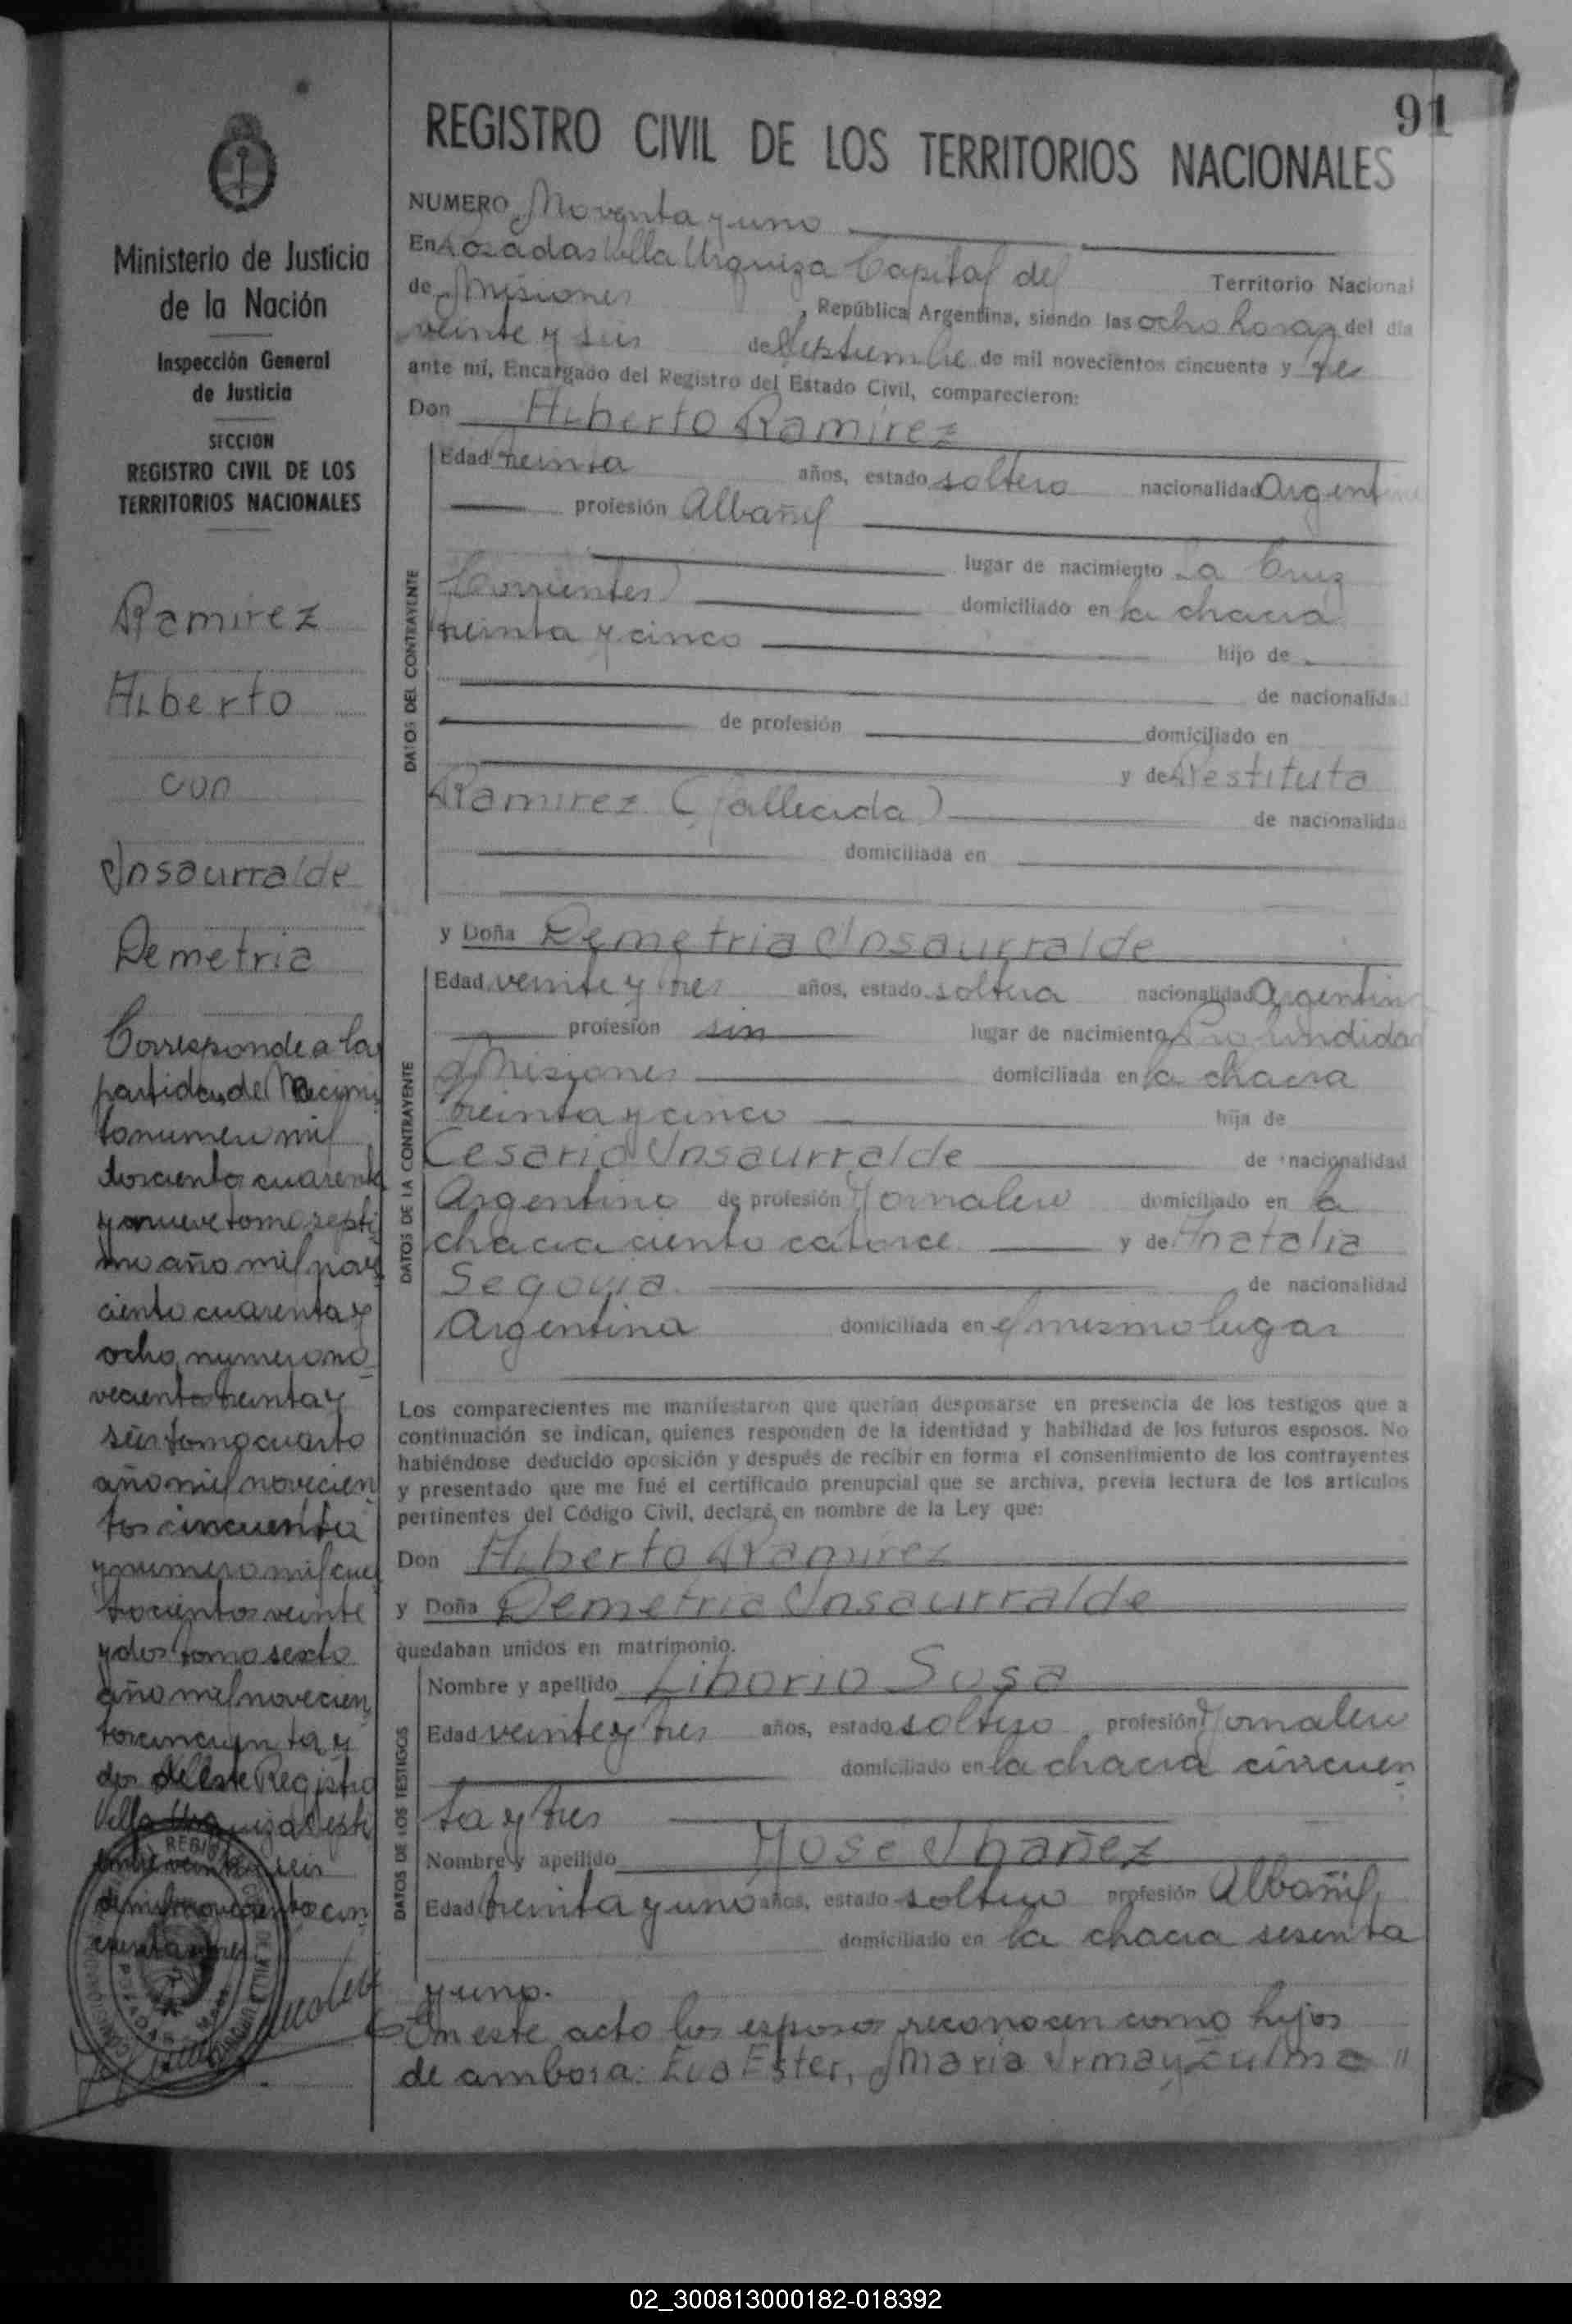 91
REGISTRO CIVIL DE LOS TERRITORIOS NACIONALES
Ministerio de Justicia
de la Nación
Inspección General
de Justicia
SECCION
REGISTRO CIVIL DE LOS
TERRITORIOS NACIONALES
Ramirez
Alberto
con
Insaurralde
Demetria
Corresponde a las
partidas de Nacimi
to numero mil
doscientos cuarenta
y nueve tomo septi
mo año mil nove
ciento cuarenta y
ocho, numero no
veciento treinta y
seis tomo cuarto
año mil novecien
tos cincuenta
y numero mil cua
trocientos veinte
y dos tomo sexto
año mil novecien
tos cincuenta y
dos de este Registro
Villa Urquiza Septi
embre veinte y seis
de mil novecientos cin
cuenta y tres
NUMERO Noventa y uno
En Posadas Villa Urquiza Capital del Territorio Nacional
de Misiones, República Argentina, siendo las ocho horas del día
veinte y seis de Septiembre de mil novecientos cincuenta y tres
ante mí, Encargado del Registro del Estado Civil, comparecieron:
Don Alberto Ramirez
DATOS DEL CONTRAYENTE
Edad treinta años, estado soltero nacionalidad Argentino
profesión Albañil
lugar de nacimiento La Cruz
Corrientes) domiciliado en la chacra
treinta y cinco hijo de
de nacionalidad
de profesión domiciliado en
y de Restituta
Ramirez (fallecida) de nacionalidad
domiciliada en
y Doña Demetria Insaurralde
DATOS DE LA CONTRAYENTE
Edad veinte y tres años, estado soltera nacionalidad Argentina
profesión sin lugar de nacimiento Profundidad
Misiones domiciliada en la chacra
treinta y cinco hija de
Cesario Insaurralde de nacionalidad
Argentino de profesión Jornalero domiciliado en la
chacra ciento catorce y de Anatalia
Segovia de nacionalidad
Argentina domiciliada en el mismo lugar
Los comparecientes me manifestaron que querían desposarse en presencia de los testigos que a
continuación se indican, quienes responden de la identidad y habilidad de los futuros esposos. No
habiéndose deducido oposición y después de recibir en forma el consentimiento de los contrayentes
y presentado que me fué el certificado prenupcial que se archiva, previa lectura de los artículos
pertinentes del Código Civil, declaré en nombre de la Ley que:
Don Alberto Ramirez
y Doña Demetria Insaurralde
quedaban unidos en matrimonio.
DATOS DE LOS TESTIGOS
Nombre y apellido Liborio Sosa
Edad veinte y tres años, estado soltero profesión Jornalero
domiciliado en la chacra cincuen
ta y tres
Nombre y apellido José Ibañez
Edad treinta y uno años, estado soltero profesión Albañil,
domiciliado en la chacra sesenta
y uno.
En este acto los esposos reconocen como hijos
de ambos a: Eva Ester, Maria Irma y Zulma "
02_300813000182-018392